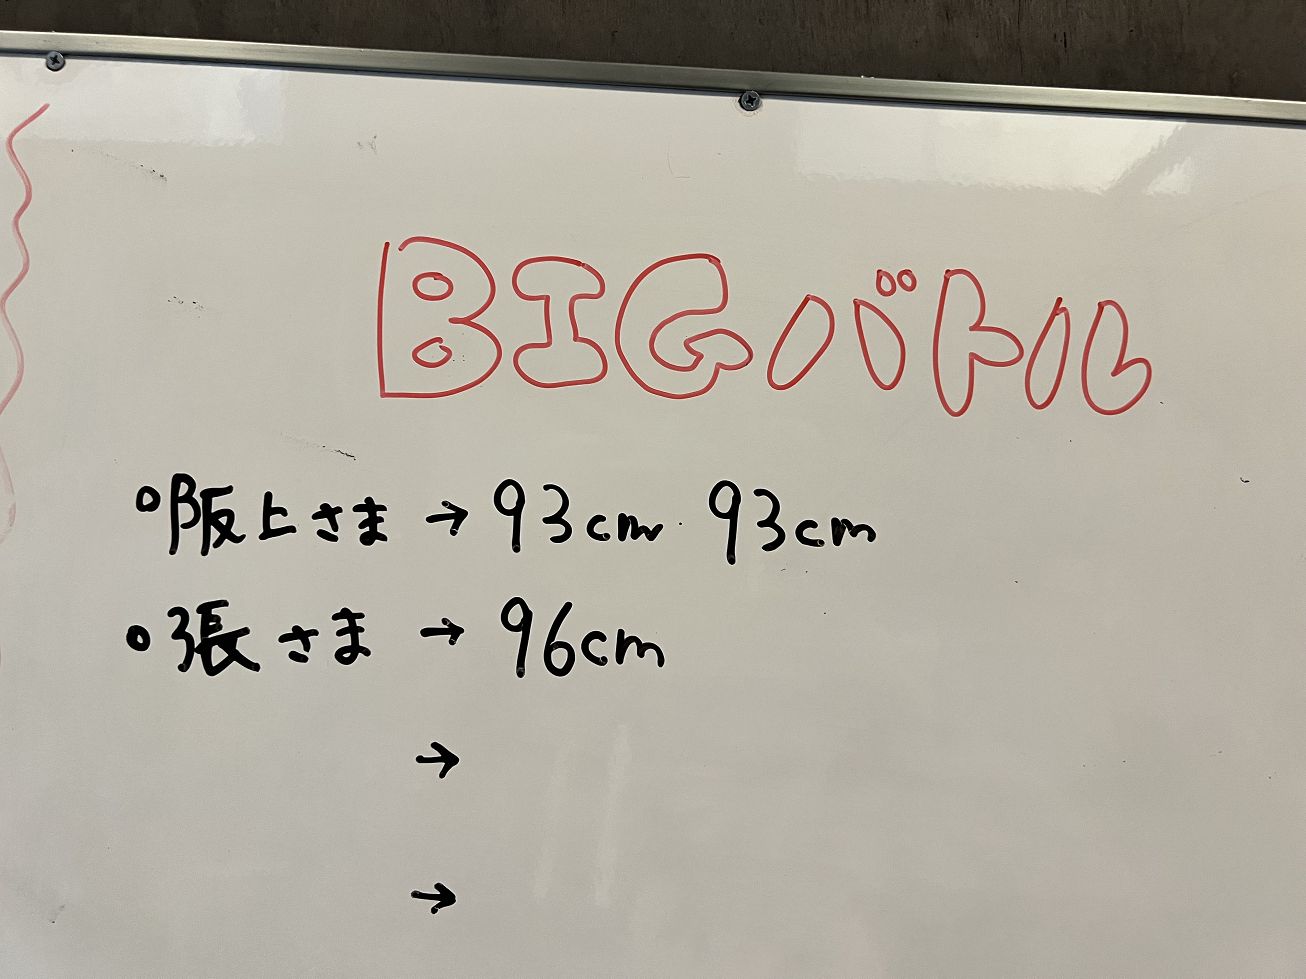 BIGバトル
○阪上さま → 93cm 93cm
○張さま → 96cm
→
→